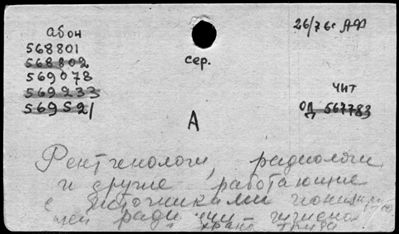 абон
568801
568802
569078
569233
569521
сер.
А
26/76г АФ
чит
од 567783
Рентгенологи, радиологи
и другие, работающие
с источниками
ради
гигиена
охрана труда